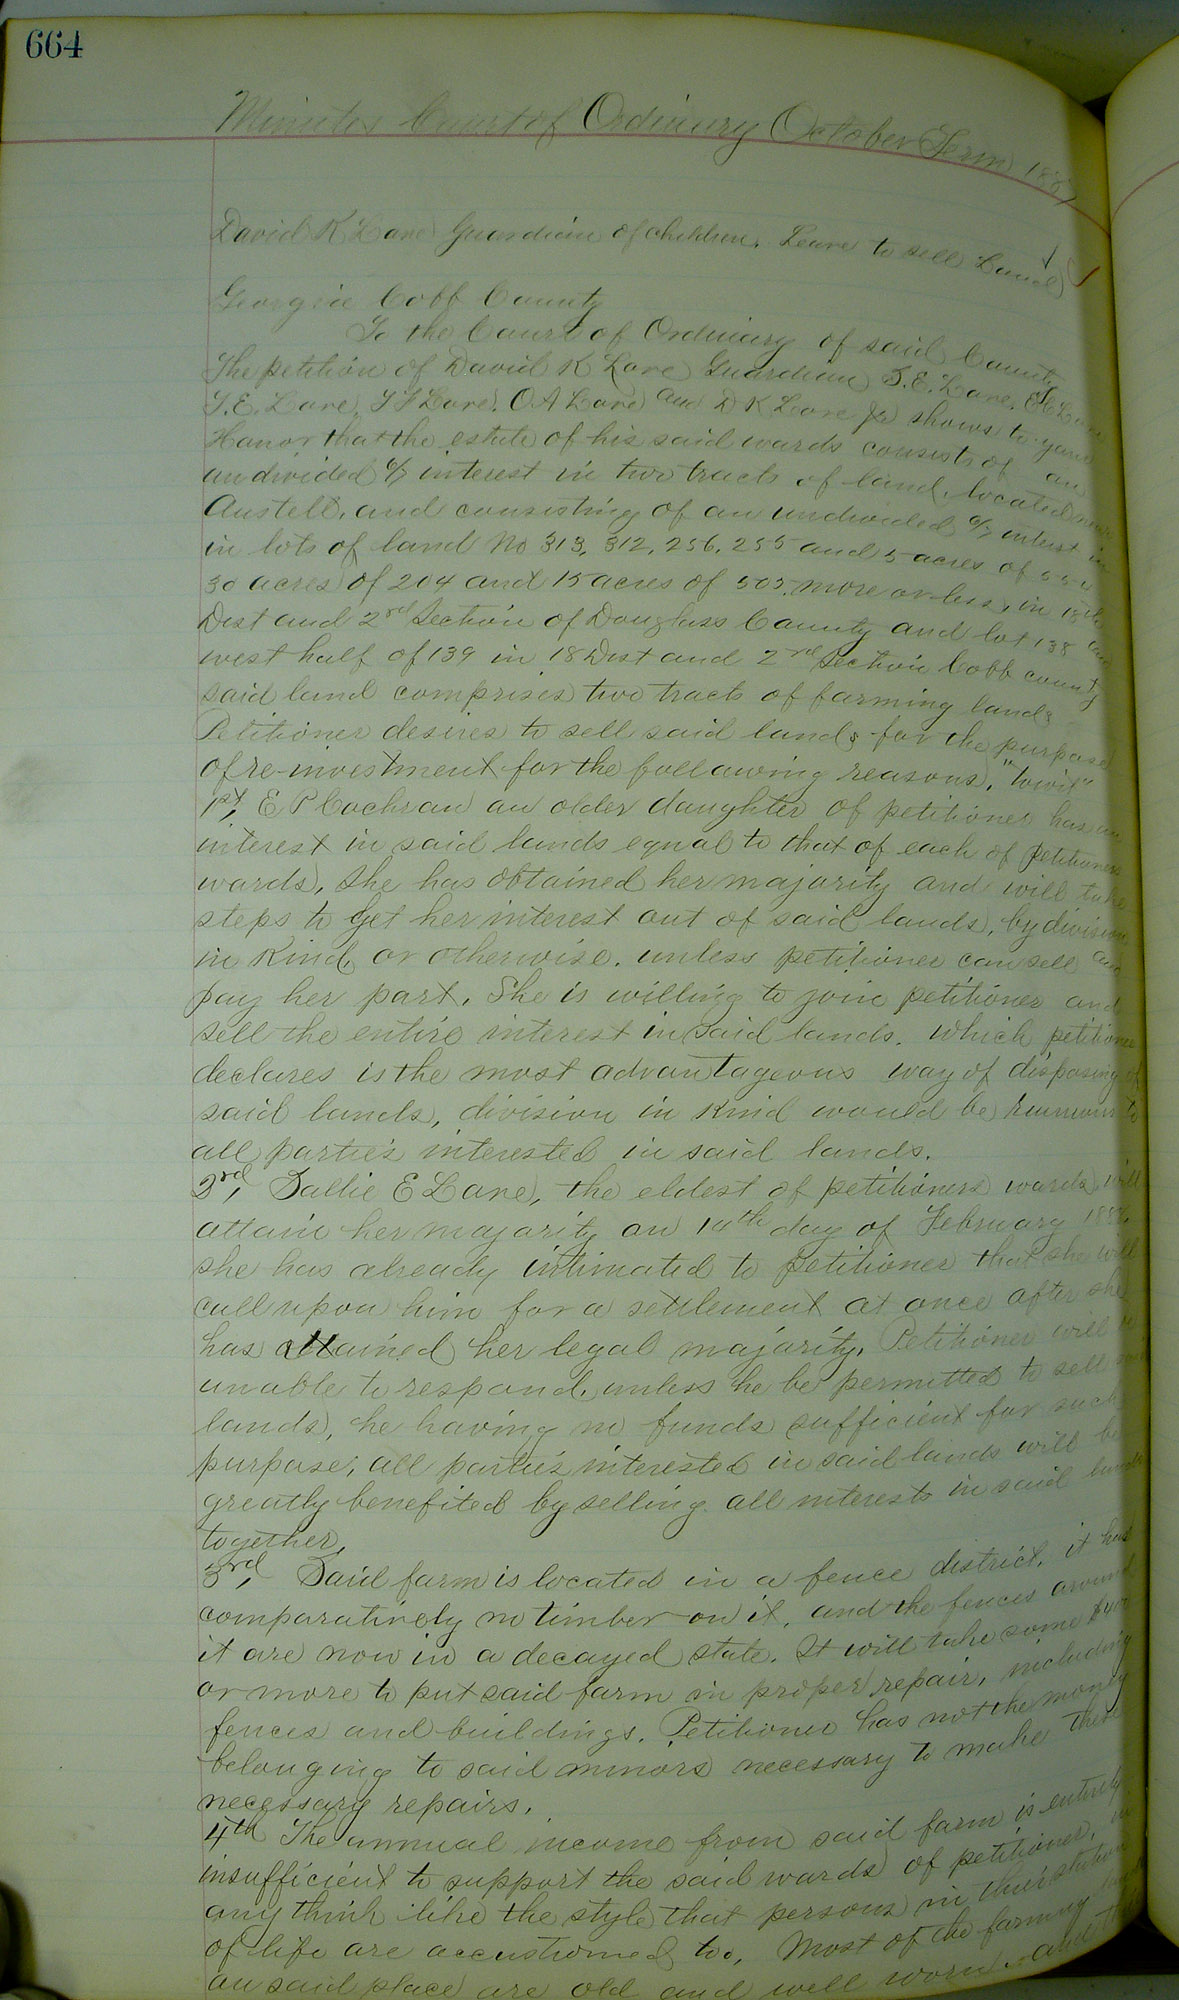 664
Minutes Court of Ordinary October Term 188
David K Lane Guardian of children. Leave to sell Land
Georgia Cobb County
To the Court of Ordinary of said County
The petition of David K Lane Guardian S. E. Lane,
T. E. Lane, T F Lane. O A Lane and D K Lane Jr shows to your
Honor that the estate of his said wards consists of an
undivided interest in two tracts of land, located near
Austell, and consisting of an undivided interest in
in lots of land No 313, 312, 256, 255 and 5 acres of
30 acres of 204 and 15 acres of 505. more or less, in 18th
Dist and 2nd Section of Douglass County and lot 138 and
west half of 139 in 18 Dist and 2nd Section Cobb county
said land comprises two tracts of farming lands
Petitioner desires to sell said lands for the purpose
of re-investment for the following reasons, "towit"
1st, E P Cochran an older daughter of petitioner has an
interest in said lands equal to that of each of petitioners
wards, She has obtained her majority and will take
steps to get her interest out of said lands, by division
in Kind, or otherwise. unless petitioner can sell and
pay her part. She is willing to join petitioner and
sell the entire interest in said lands. which petitioner
declares is the most advantageous way of disposing of
said lands, division in kind would be to
all parties interested in said lands.
2nd, Sallie E Lane, the eldest of petitioners wards will
attain her majority on day of February
she has already intimated to petitioner that she will
call upon him for a settlement at once after she
has attained her legal majority. Petitioner will be
unable to respond, unless he be permitted to sell said
lands, he having no funds sufficient for such
purpose, all parties interested in said lands will be
greatly benefited by selling all interests in said lands
together.
3rd, Said farm is located in a fence district, it has
comparatively no timber on it, and the fences around
it are now in a decayed state. It will take some
or more to put said farm in proper repair, including
fences and buildings. Petitioner has not the money
belonging to said minors necessary to make these
necessary repairs.
4th The annual income from said farm is entirely
insufficient to support the said wards of petitioner, in
any think like the style that persons in their station
of life are accustomed too, Most of the farming lands
on said place are old and well worn and